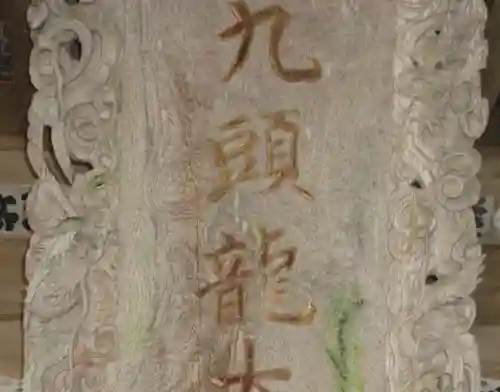 九頭龍大